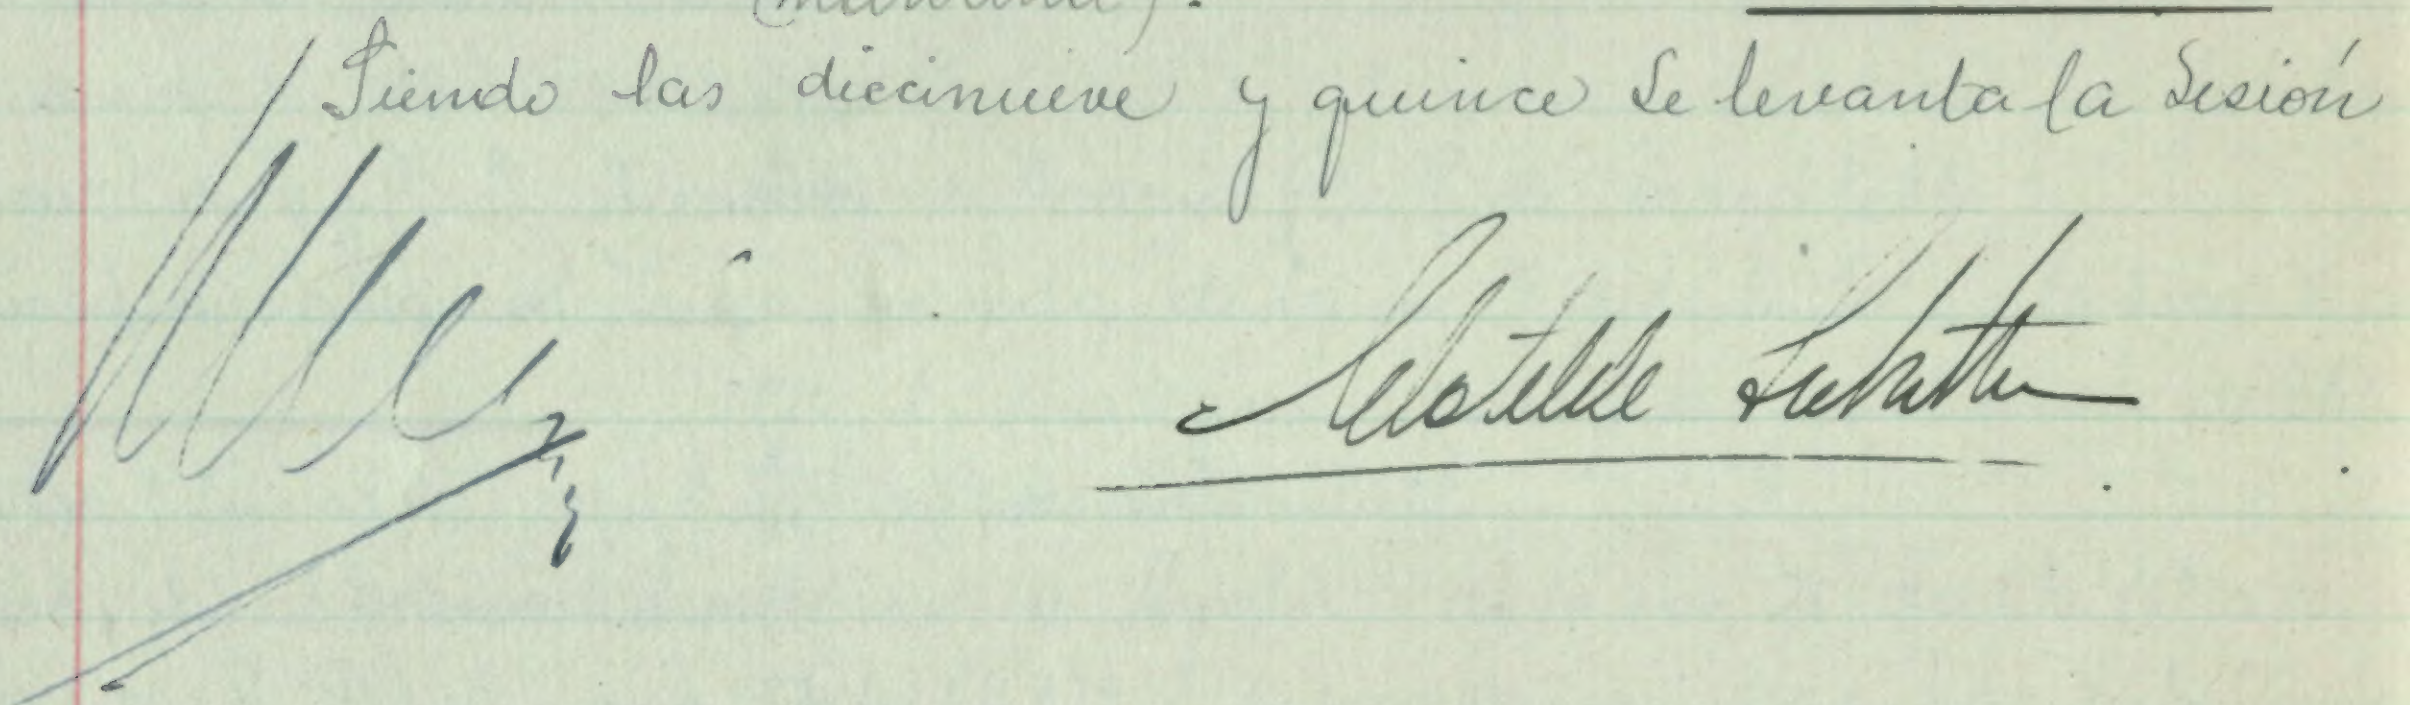 Siendo las diecinueve y quince se levanta la Sesión
Clotilde